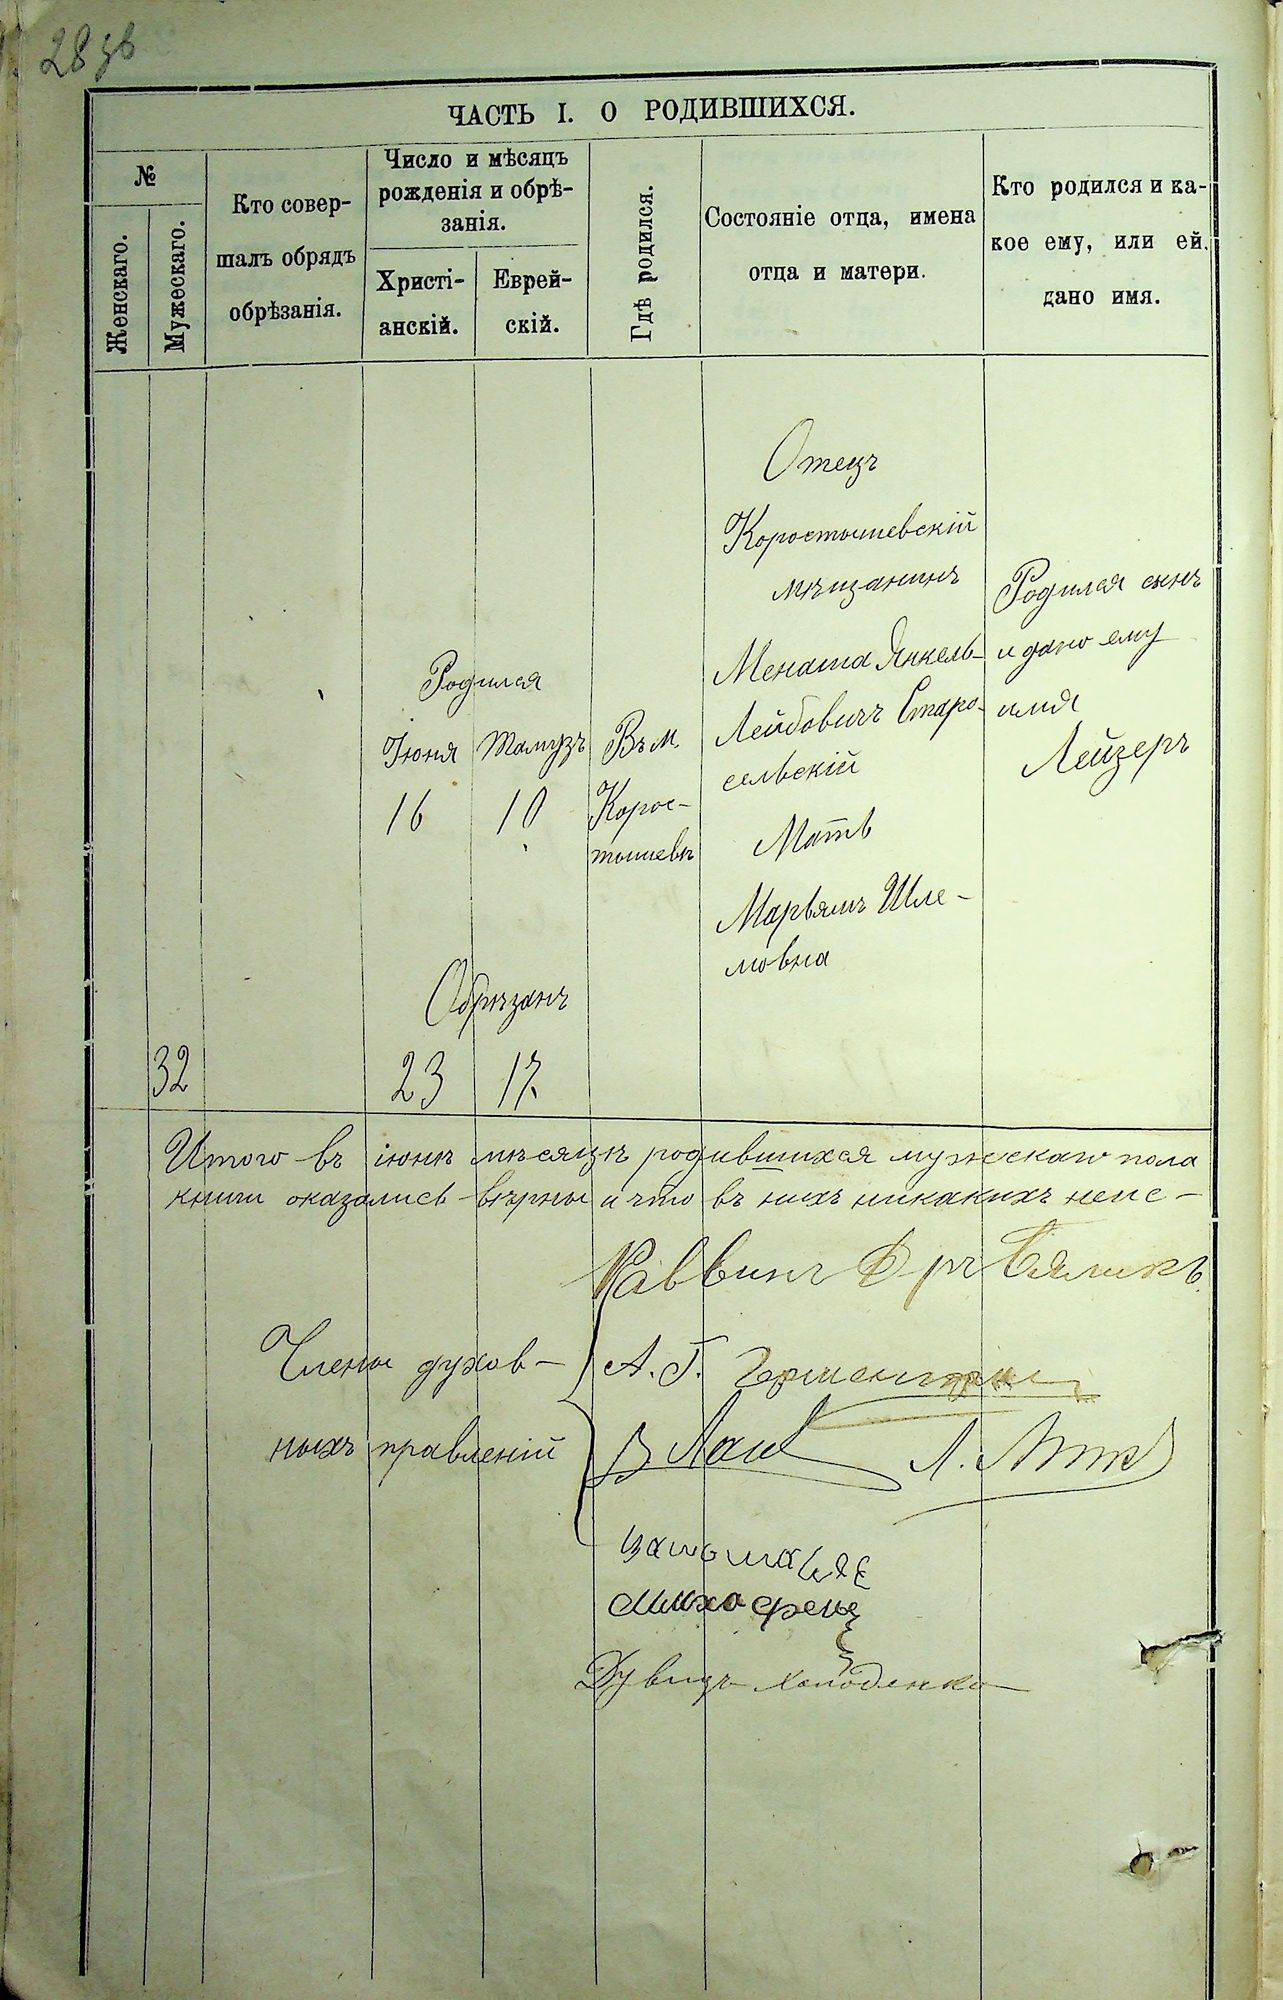 28 зв
ЧАСТЬ I. О РОДИВШИХСЯ.
№
Женскаго.
Мужескаго.
Кто совер-
шалъ обрядъ
обрѣзанія.
Число и мѣсяцъ
рожденія и обрѣ-
занія.
Христі-
анскій.
Еврей-
скій.
Гдѣ родился.
Состояніе отца, имена
отца и матери.
Кто родился и ка-
кое ему, или ей
дано имя.
32
Родился
Іюня Тамузъ
16 10
Обрѣзанъ
23 17
Въ м.
Корос-
тышевѣ
Отецъ
Коростышевскій
мѣщанинъ
Менаша Янкель-
Лейбовичъ Старо-
сельскій
Мать
Марьямъ Шле-
мовна
Родился сынъ
и дано ему
имя
Лейзеръ
Итого въ іюнѣ мѣсяцѣ родившихся мужескаго пола
книги оказались вѣрны и что въ нихъ никакихъ неис-
Раввинъ Д ръ Бяликъ
Члены духов-
ныхъ правленій
А. Г.
В
Л.
Дувидъ Холоденко